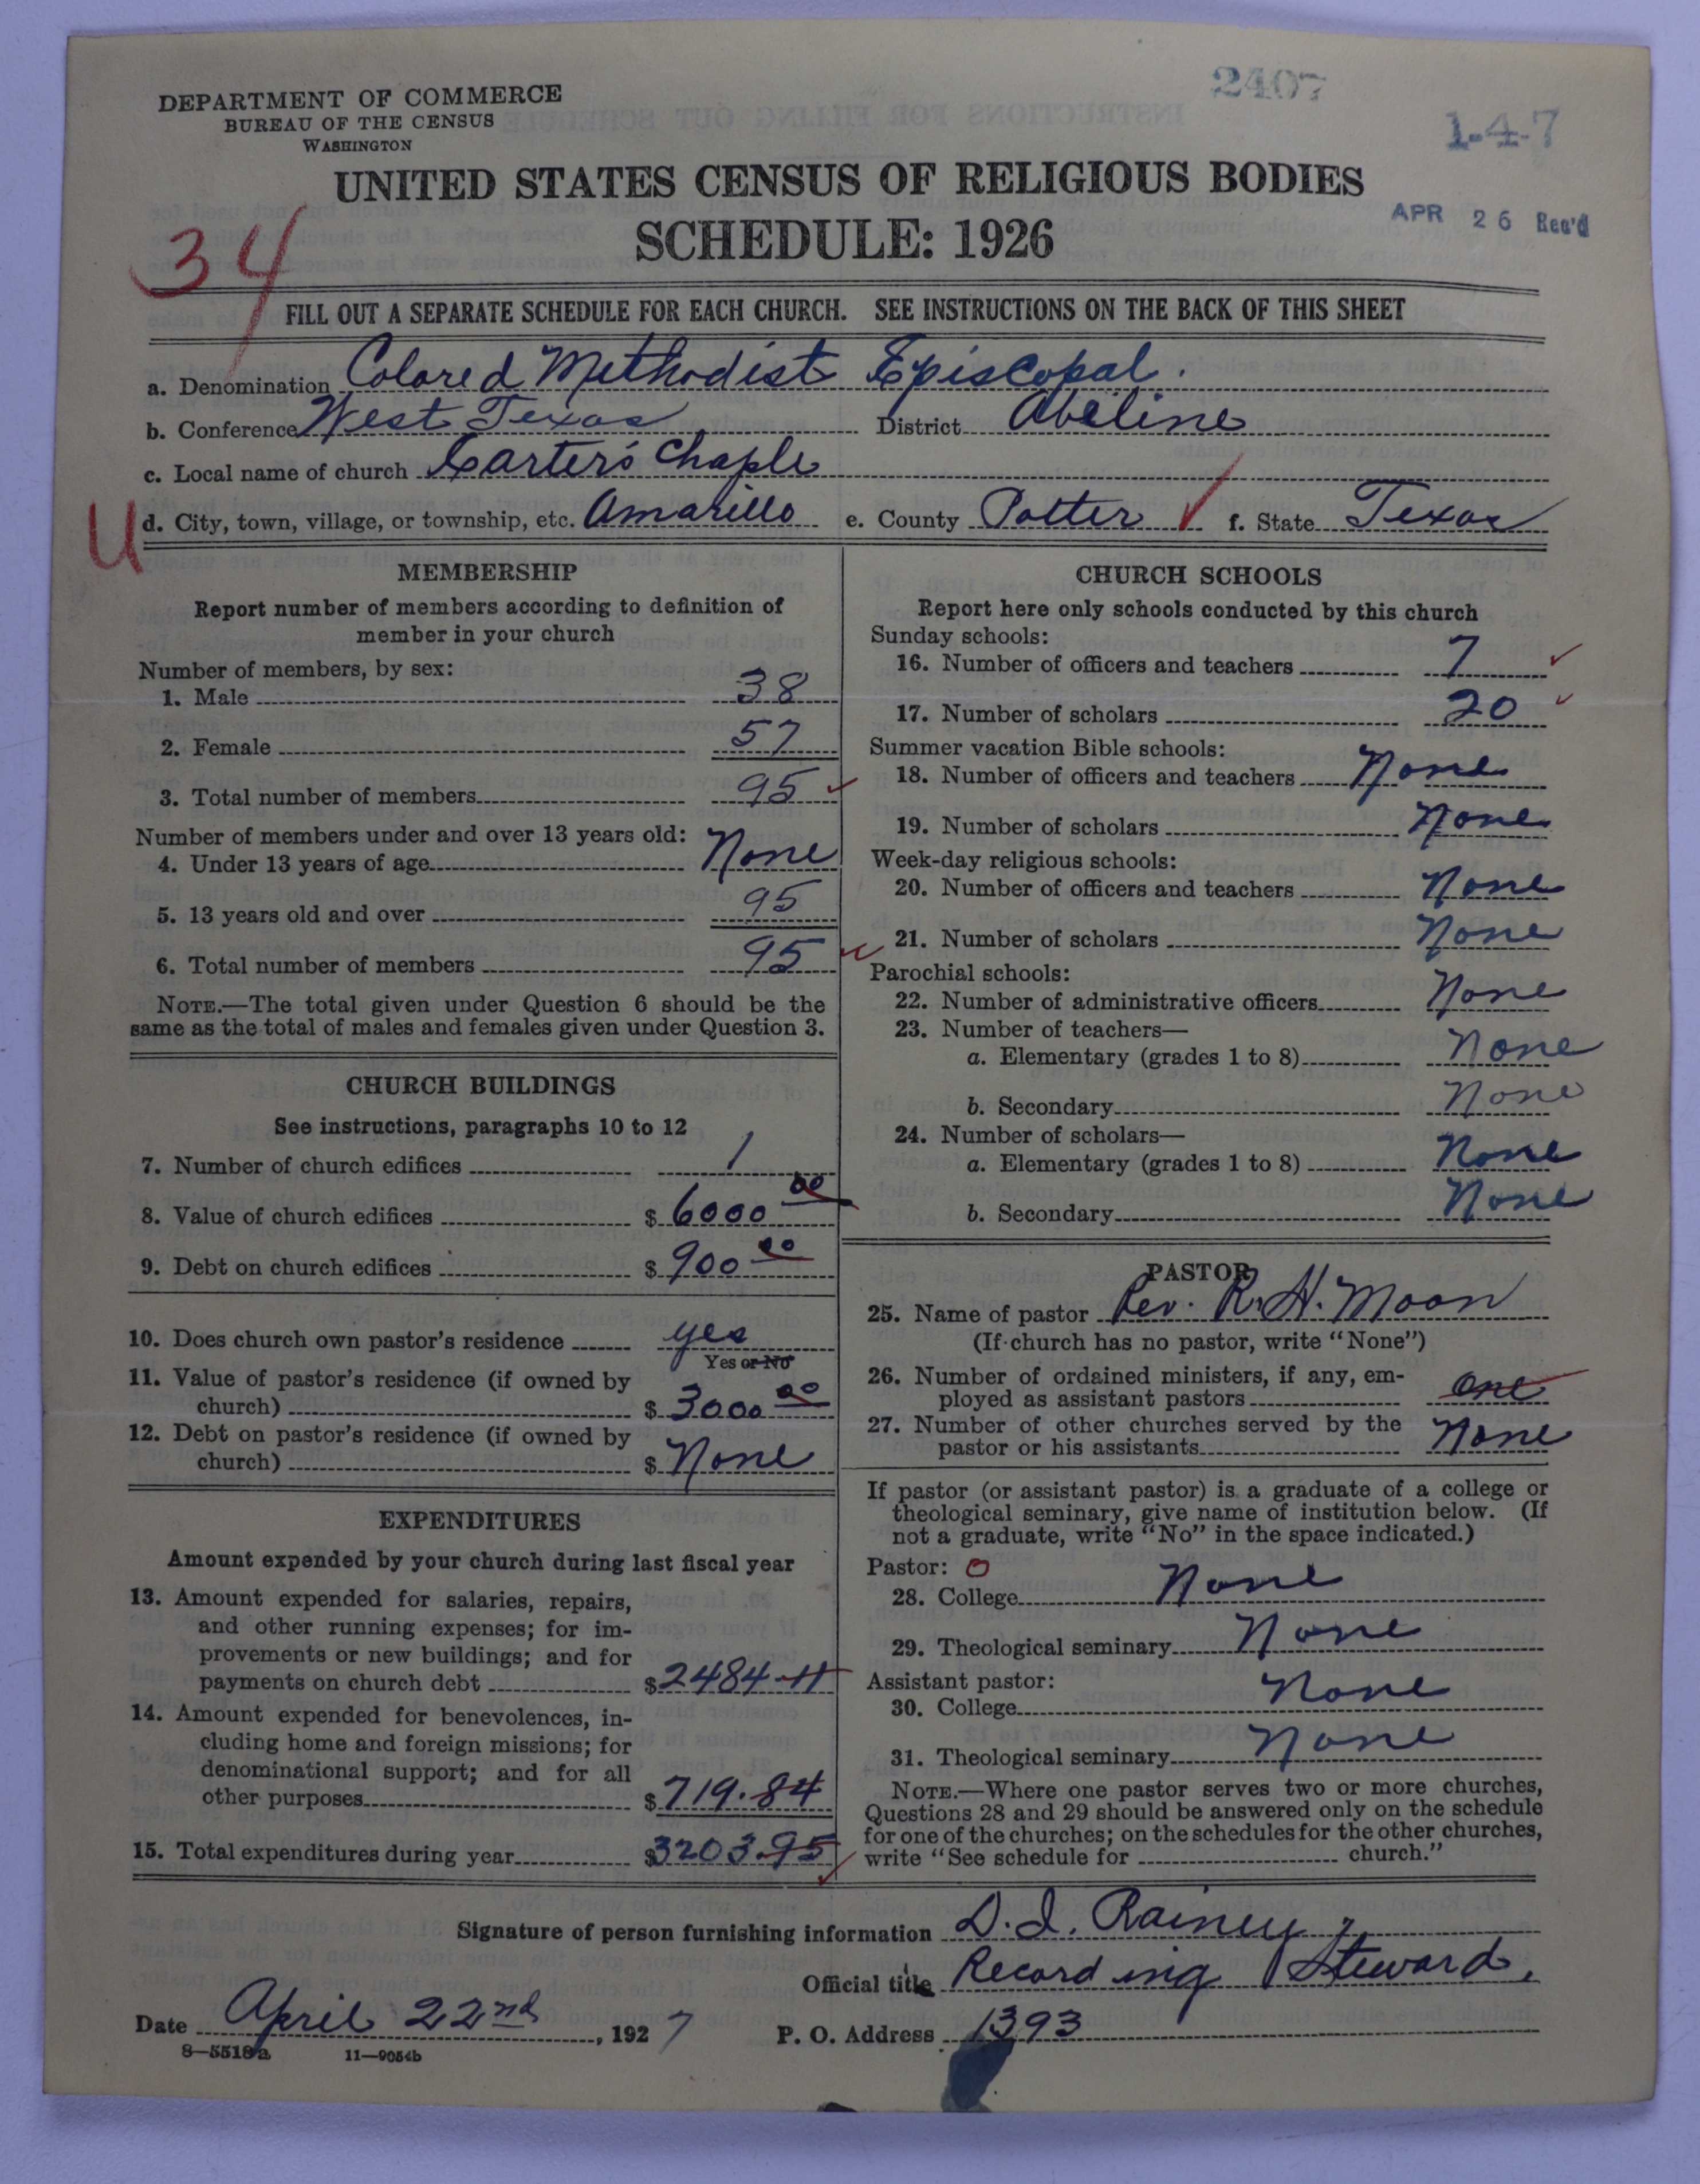 2407
1-4-7
DEPARTMENT OF COMMERCE
BUREAU OF THE CENSUS
WASHINGTON
UNITED STATES CENSUS OF RELIGIOUS BODIES
SCHEDULE: 1926
APR 26 Rec'd
34
FILL OUT A SEPARATE SCHEDULE FOR EACH CHURCH. SEE INSTRUCTIONS ON THE BACK OF THIS SHEET
a. Denomination Colored Methodist Episcopal.
b. Conference West Texas District Abeline
c. Local name of church Carter's Chaple
U d. City, town, village, or township, etc. Amarillo e. County Potter f. State Texas
MEMBERSHIP
Report number of members according to definition of
member in your church
Number of members, by sex:
1. Male 38
2. Female 57
3. Total number of members 95
Number of members under and over 13 years old:
4. Under 13 years of age None
5. 13 years old and over 95
6. Total number of members 95
NOTE.—The total given under Question 6 should be the
same as the total of males and females given under Question 3.
CHURCH BUILDINGS
See instructions, paragraphs 10 to 12
7. Number of church edifices 1
8. Value of church edifices $ 6000 00
9. Debt on church edifices $ 900 00
10. Does church own pastor's residence yes
Yes or No
11. Value of pastor's residence (if owned by
church) $ 3000 00
12. Debt on pastor's residence (if owned by
church) $ None
EXPENDITURES
Amount expended by your church during last fiscal year
13. Amount expended for salaries, repairs,
and other running expenses; for im-
provements or new buildings; and for
payments on church debt $ 2484-11
14. Amount expended for benevolences, in-
cluding home and foreign missions; for
denominational support; and for all
other purposes $ 719.84
15. Total expenditures during year $ 3203.95
CHURCH SCHOOLS
Report here only schools conducted by this church
Sunday schools:
16. Number of officers and teachers 7
17. Number of scholars 20
Summer vacation Bible schools:
18. Number of officers and teachers None
19. Number of scholars None
Week-day religious schools:
20. Number of officers and teachers None
21. Number of scholars None
Parochial schools:
22. Number of administrative officers None
23. Number of teachers—
a. Elementary (grades 1 to 8) None
b. Secondary None
24. Number of scholars—
a. Elementary (grades 1 to 8) None
b. Secondary None
PASTOR
25. Name of pastor Rev. R. H. Moon
(If church has no pastor, write "None")
26. Number of ordained ministers, if any, em-
ployed as assistant pastors one
27. Number of other churches served by the
pastor or his assistants None
If pastor (or assistant pastor) is a graduate of a college or
theological seminary, give name of institution below. (If
not a graduate, write "No" in the space indicated.)
Pastor: O
28. College None
29. Theological seminary None
Assistant pastor:
30. College None
31. Theological seminary None
NOTE.—Where one pastor serves two or more churches,
Questions 28 and 29 should be answered only on the schedule
for one of the churches; on the schedules for the other churches,
write "See schedule for church."
Signature of person furnishing information D. I. Rainey,
Official title Recording Steward,
Date April 22nd, 1927 P. O. Address 1393
8—5518a 11—9054b